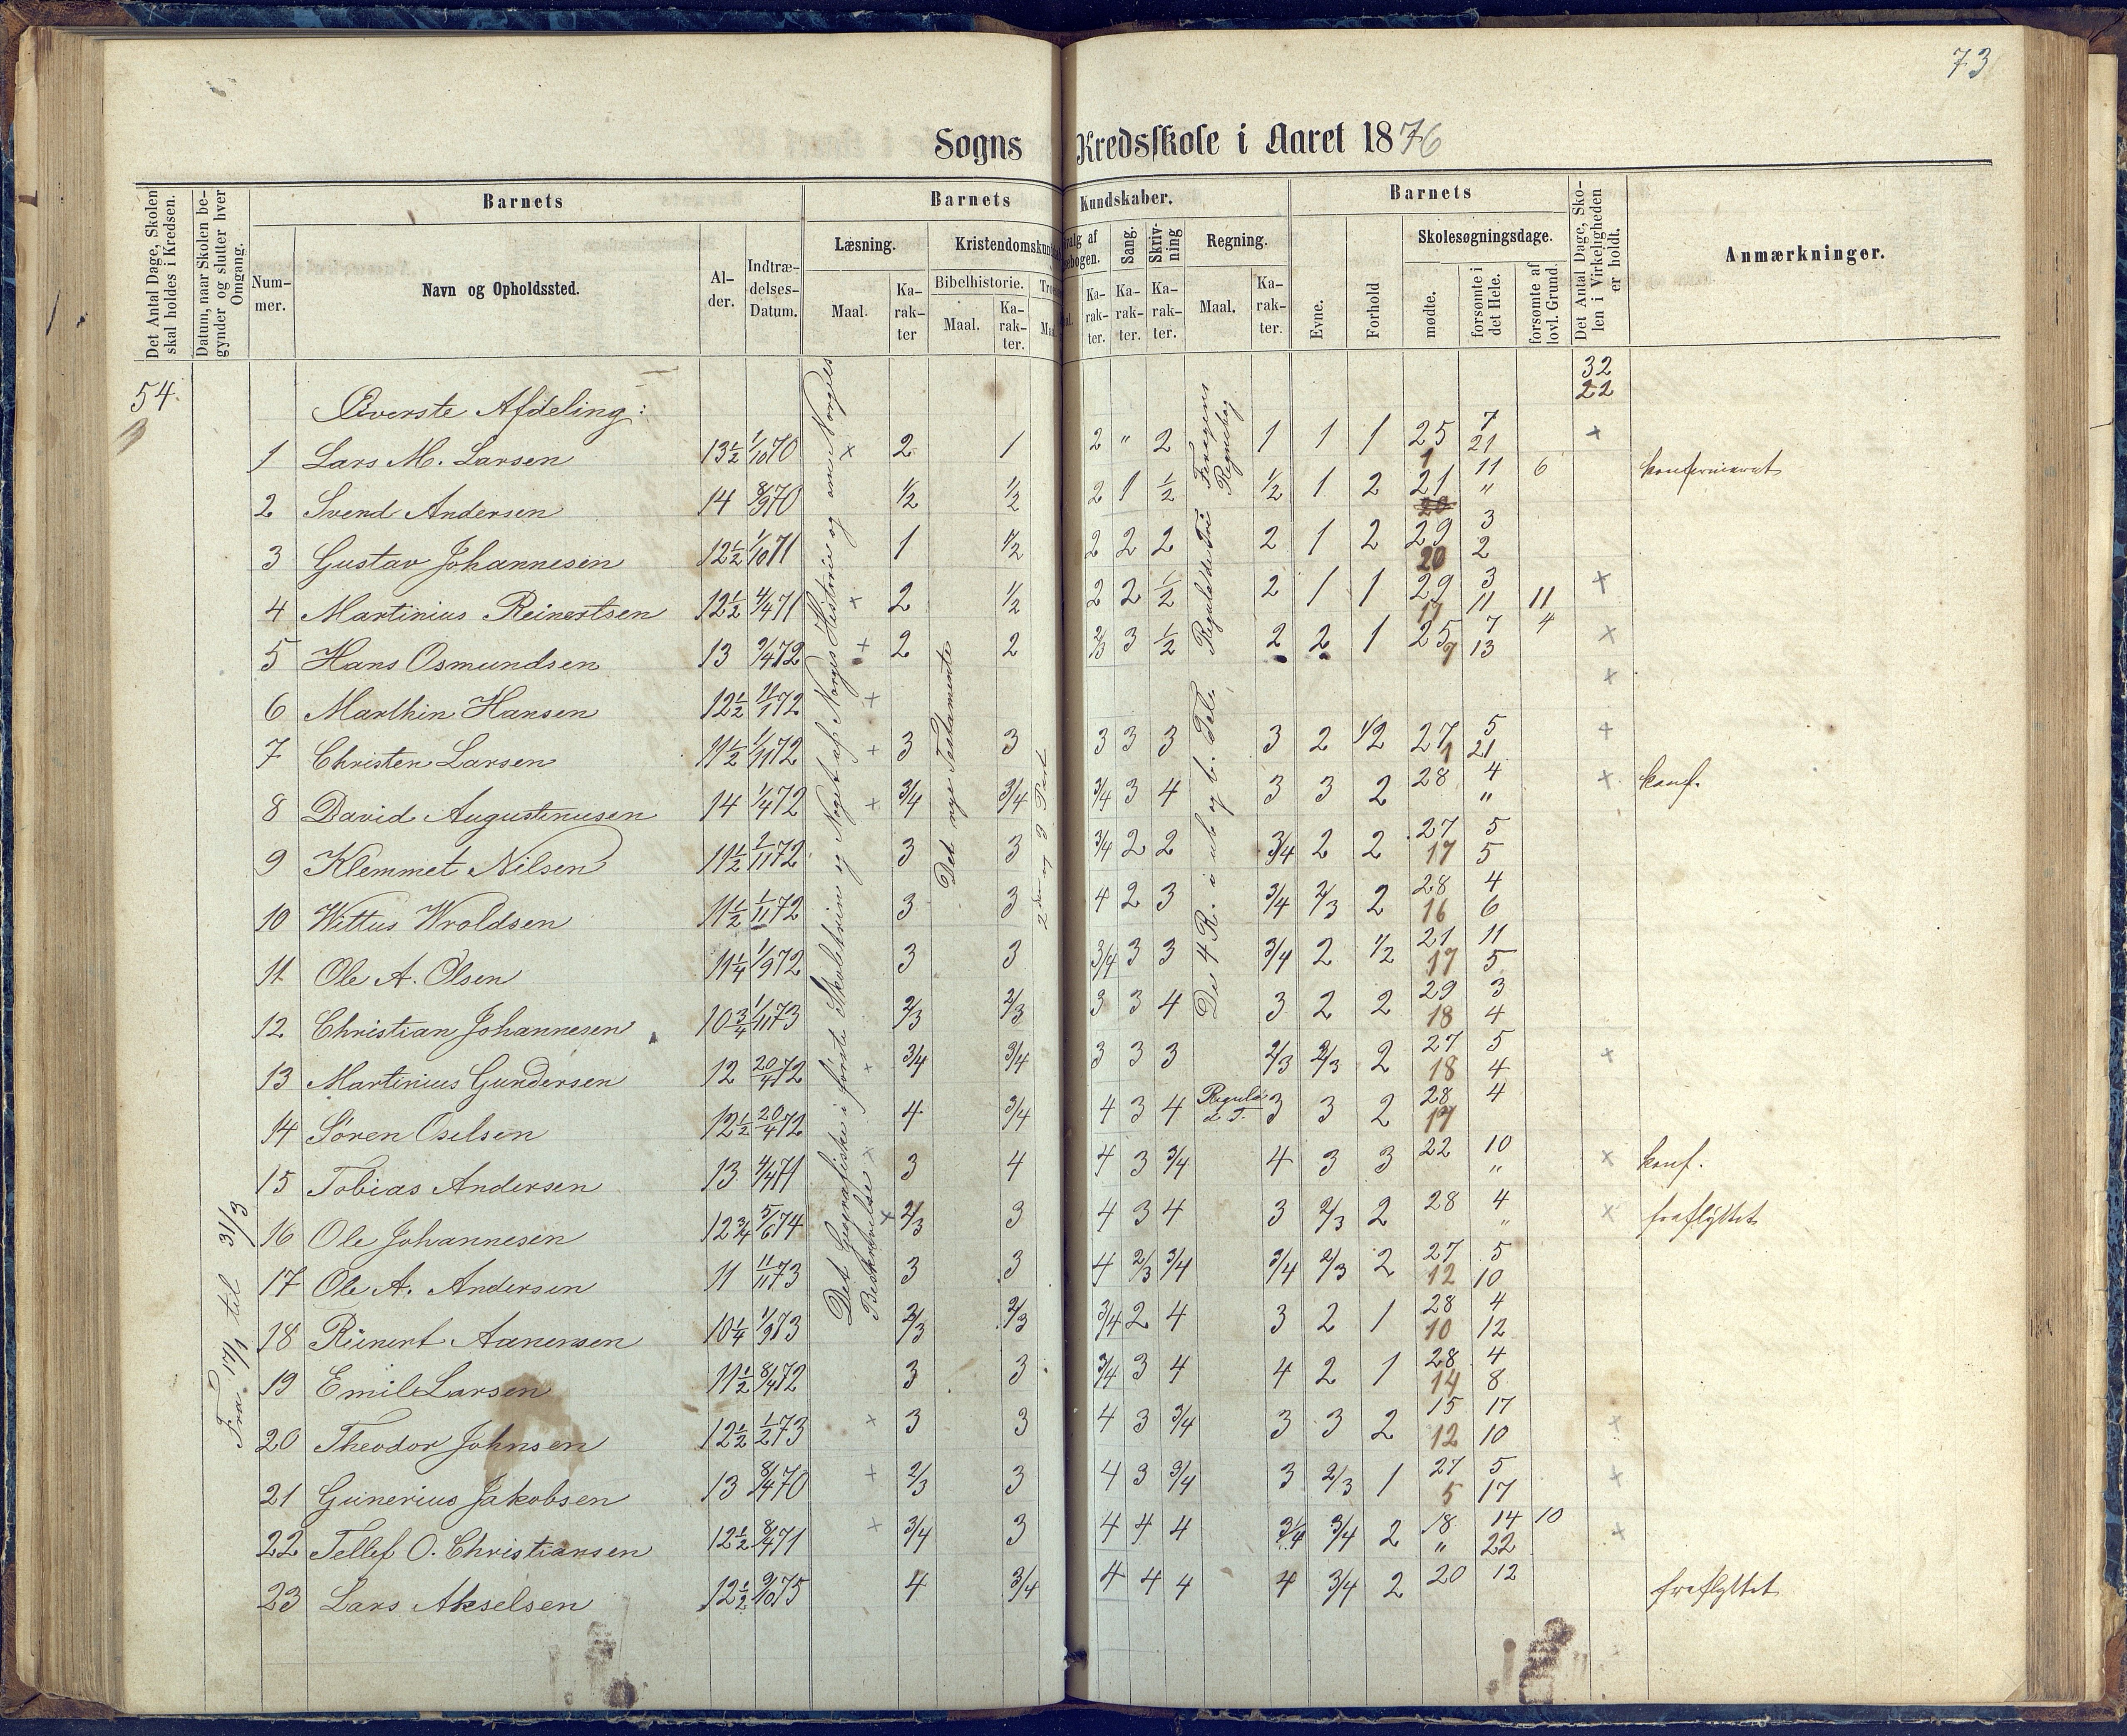 73
Sogns Kredsskole i Aaret 1876
Det Antal Dage, Skolen skal holdes i Kredsen.
Datum, naar Skolen begynder og slutter hver Omgang.
Barnets
Nummer.
Navn og Opholdssted.
Alder.
Indtrædelses-Datum.
Barnets Kundskaber.
Læsning.
Maal.
Karakter
Kristendomskundskab
Bibelhistorie.
Maal.
Karakter.
Udvalg af Læsebogen.
Karakter.
Sang.
Karakter.
Skrivning
Karakter.
Regning.
Maal.
Karakter.
Barnets
Evne.
Forhold
Skolesøgningsdage.
mødte.
forsømte i det Hele.
forsømte af lovl. Grund.
Det Antal Dage, Skolen i Virkeligheden er holdt.
Anmærkninger.
54.
32
22
Øverste Afdeling:
Fra 17/1 til 31/3
Det Geografiske i første Skoletrin og Noget af Norges Historie og om Norges Beskrivelse
Det nye Testamente
2den og 3 Part
De 4 R. i ub og b. Tele
Regula de Tri
Regnebog
1 Lars M. Larsen 13½ 1/10 70 x 2 1 2 " 2 1 1 1 25 7 1 21 x
2 Svend Andersen 14 8/9 70 1/2 1/2 2 1 1/2 1/2 1 2 21 11 6 " konfirmeret
3 Gustav Johannesen 12½ 1/10 71 1 1/2 2 2 2 2 1 2 29 3 20 2
4 Martinius Reinertsen 12½ 4/4 71 x 2 1/2 2 2 1/2 2 1 1 29 3 11 11 11 x
5 Hans Osmundsen 13 9/4 72 + 2 2 2/3 3 1/2 2 2 1 25 7 4 9 13 x
6 Marthin Hansen 12½ 72 + x
7 Christen Larsen 11½ 1/11 72 + 3 3 3 3 3 3 2 1/2 27 5 1 21 +
8 David Augustinusen 14 1/4 72 + 3/4 3/4 3/4 3 4 3 3 2 28 4 " x konf.
9 Klemmet Nilsen 11½ 1/11 72 3 3 3/4 2 2 3/4 2 2 27 5 17 5
10 Wittus Wroldsen 11½ 1/11 72 3 3 4 2 3 3/4 2/3 2 28 4 16 6
11 Ole A. Olsen 11¼ 1/9 72 3 3 3/4 3 3 3/4 2 1/2 21 11 17 5
12 Christian Johannesen 10¾ 1/11 73 2/3 2/3 3 3 4 3 2 2 29 3 18 4
13 Martinius Gundersen 12 20/4 72 x 3/4 3/4 3 3 3 2/3 2/3 2 27 5 18 4 x
14 Søren Oselsen 12½ 20/4 72 4 3/4 4 3 4 Regula d T. 3 3 2 28 4 17
15 Tobias Andersen 13 4/4 71 x 3 4 4 3 3/4 4 3 3 22 10 " x konf.
16 Ole Johannesen 12¾ 5/6 74 x 2/3 3 4 3 4 3 2/3 2 28 4 " x fraflyttet
17 Ole A. Andersen 11 11/11 73 3 3 4 2/3 3/4 3/4 2/3 2 27 5 12 10
18 Reinert Aanensen 10¼ 1/9 73 2/3 2/3 3/4 2 4 3 2 1 28 4 10 12
19 Emil Larsen 11½ 8/4 72 3 3 3/4 3 4 4 2 1 28 4 14 8
20 Theodor Johnsen 12½ 1/2 73 x 3 3 4 3 3/4 3 3 2 15 17 12 10 x
21 Gunerius Jakobsen 13 8/4 70 + 2/3 3 4 3 3/4 3 2/3 1 27 5 5 17 x
22 Tellef O. Christiansen 12½ 8/4 71 x 3/4 3 4 4 4 3/4 3/4 2 18 14 10 " 22 x
23 Lars Akselsen 12½ 9/10 75 4 3/4 4 4 4 4 3/4 2 20 12 fraflyttet